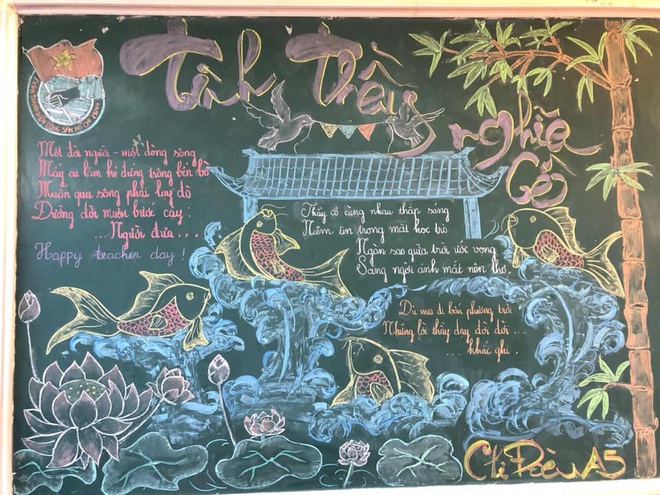 Tình Thầy
nghĩa
Cô
Một đời người - một dòng sông
Mấy ai làm kẻ đứng trông bến bờ
Muốn qua sông phải lụy đò
Đường đời muôn bước cậy
... Người đưa ...
Happy teacher day !
Thầy cô cùng nhau thắp sáng
Niềm tin trong mắt học trò
Ngàn sao giữa trời ước vọng
Sáng ngời ánh mắt nên thơ.
Dù mai đi bốn phương trời
Những lời thầy dạy đời đời ...
... khắc ghi ...
Chi Đoàn A5